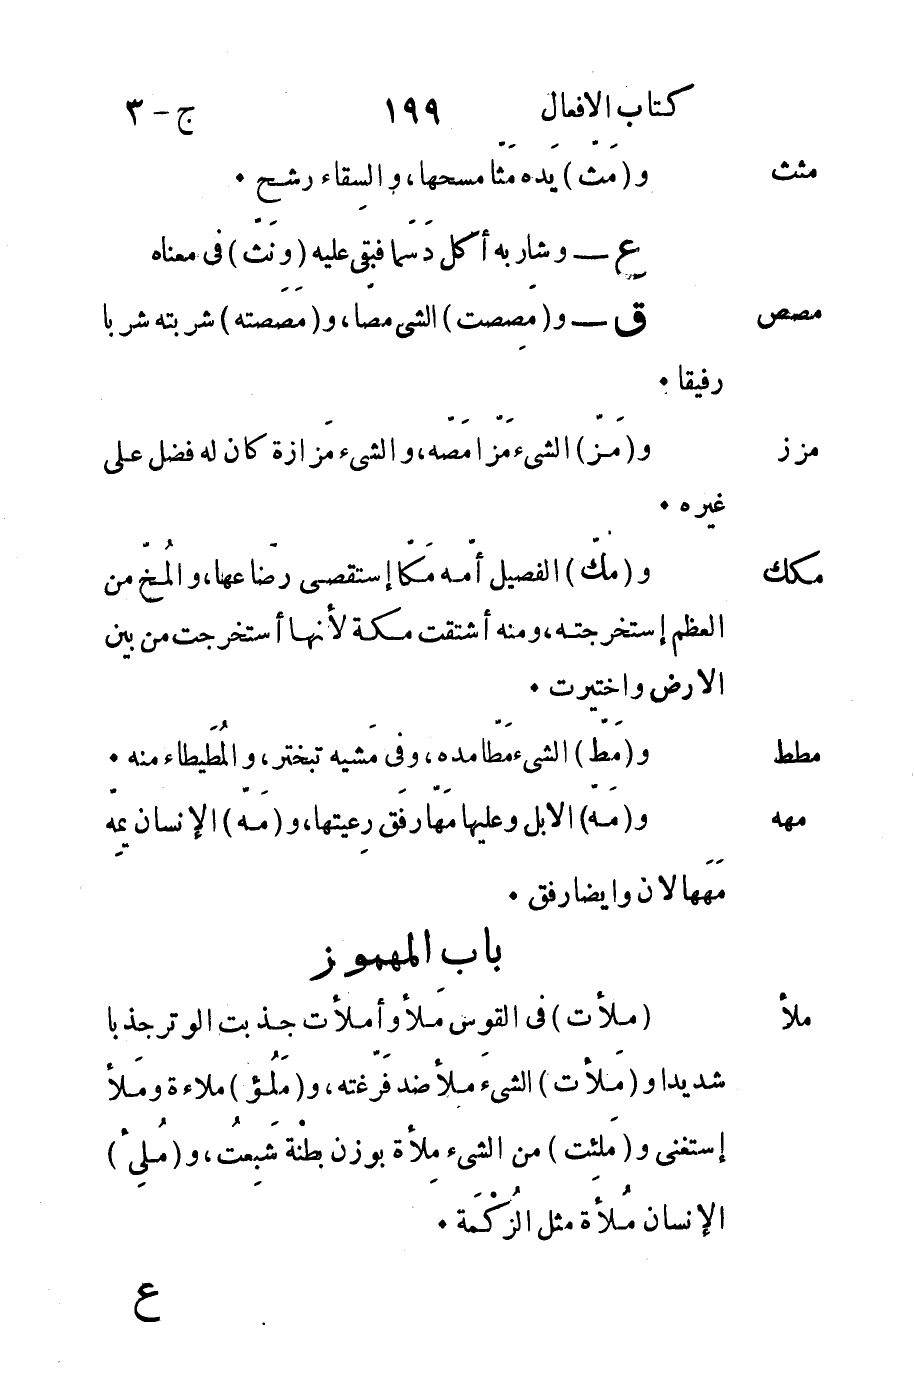 كتاب الافعال ١٩٩ ج - ٣
مثث و (مَثّ) يَده مَثّا مسحها، والسِقاء رشح •
ع — وشاربه أكل دَسَما فبَقِى عليه (وَنَثّ) فى معناه
مصص ق — و (مصِصت) الشىّ مصا، و (مَصَصته) شربته شربا
رفيقا •
مزز و (مَزّ) الشىء مَزّا مَصّه، والشىء مَزازة كان له فضل على
غيره •
مكك و (مكّ) الفصيل أمّه مَكّا إستقصى رضَاعها، والمُخّ من
العظم إستخرجته، ومنه أشتقت مكة لأنها أستخرجت من بين
الارض واختيرت •
مطط و (مَطّ) الشىء مَطّا مده، وفى مَشيه تبختر، والمُطَيطاء منه •
مهه و (مَهّ) الابل وعليها مَهّا رفَق رِعيتها، و (مَهّ) الإنسان يمِهّ
مَهَها لان وايضا رفق •
باب المهموز
ملأ (ملأت) فى القوسِ مَلأ وأملأت جذبت الوتر جذبا
شديدا و (مَلأت) الشىءَ مَلأ ضد فَرّغته، و (مَلُؤ) ملاءة ومَلأ
إستغنى و (مَلِئت) من الشىء مِلأة بوزن بِطْنة شَبِعتُ، و (مُلِئَ)
الإنسان مُلأة مثل الزُكْمَة •
ع